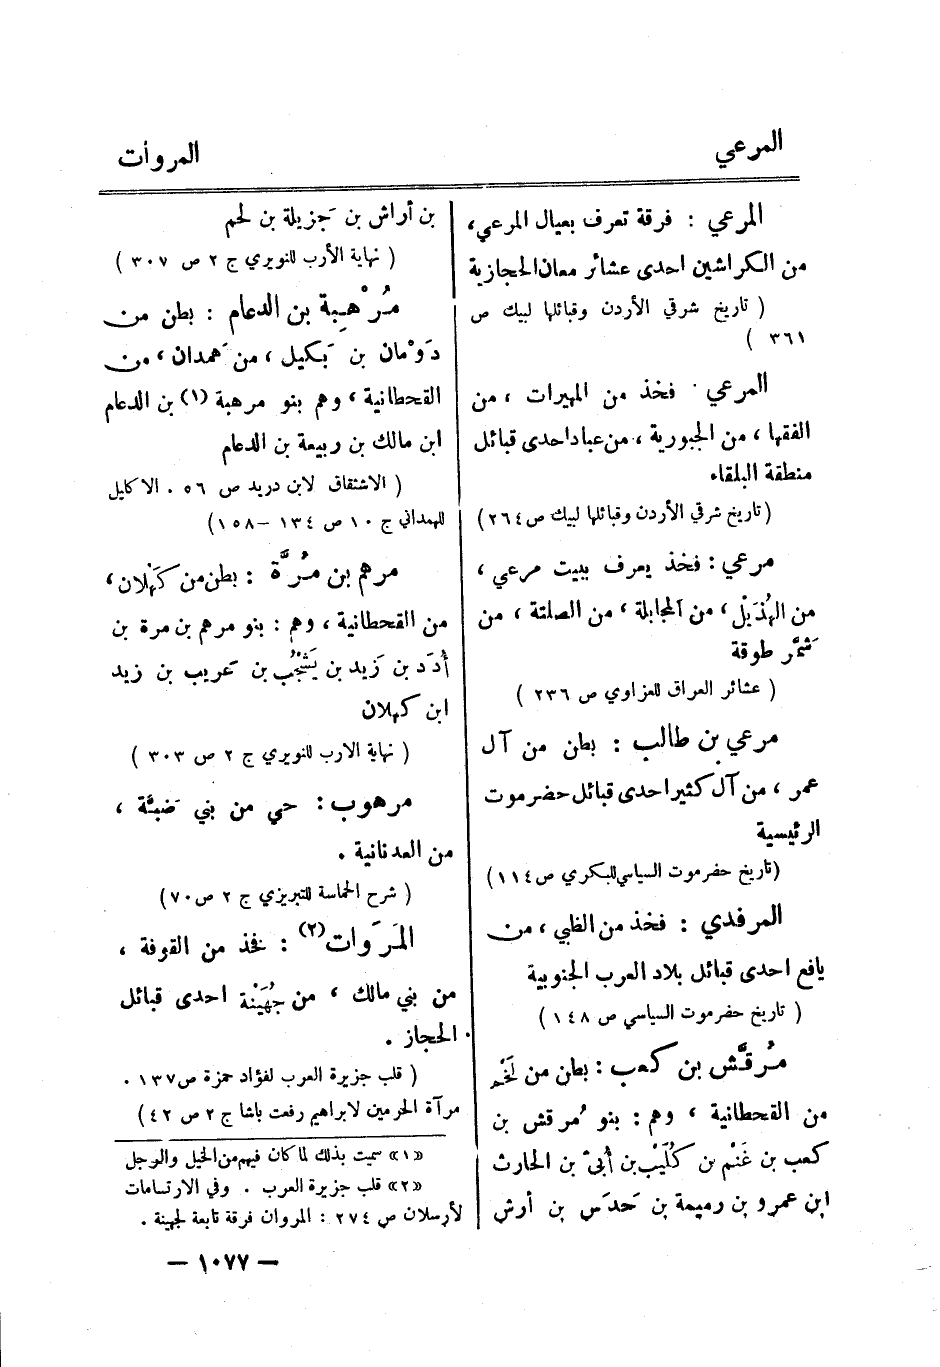 المرعي
المروات
المرعي : فرقة تعرف بعيال المرعي،
من الكراشين احدى عشائر معان الحجازية
( تاريخ شرقي الأردن وقبائلها لبيك ص
٣٦١ )
المرعي . فخذ من المهيرات ، من
الفقها ، من الجبورية ، من عباد احدى قبائل
منطقة البلقاء
(تاريخ شرقي الأردن وقبائلها لبيك ص ٢٦٤)
مرعي : فخذ يعرف ببيت مرعي ،
من الهُذَيْل ، من المجابلة ، من الصلتة ، من
شمَّر طوقة
( عشائر العراق للعزاوي ص ٢٣٦ )
مرعي بن طالب : بطن من آل
عمر ، من آل كثير احدى قبائل حضرموت
الرئيسية
(تاريخ حضرموت السياسي للبكري ص ١١٤)
المرفدي : فخذ من الظبي ، من
يافع احدى قبائل بلاد العرب الجنوبية
( تاريخ حضرموت السياسي ص ١٤٨ )
مُرقَّش بن كعب : بطن من لَخْم
من القحطانية ، وهم : بنو مُرقش بن
كعب بن غَنْم بن كُلَيْب بن أبيّ بن الحارث
ابن عمرو بن رميمة بن حَدَس بن أرش
بن أراش بن جَزيلة بن لخم
( نهاية الأرب للنويري ج ٢ ص ٣٠٧ )
مُرْهِبة بن الدعام : بطن من
دَوْمان بن بَكيل ، من هَمدان ، من
القحطانية ، وهم بنو مرهبة (١) بن الدعام
ابن مالك بن ربيعة بن الدعام
( الاشتقاق لابن دريد ص ٥٦ . الاكليل
للهمداني ج ١٠ ص ١٣٤ – ١٥٨)
مرهم بن مُرَّة : بطن من كَهْلان ،
من القحطانية ، وهم : بنو مرهم بن مرة بن
أُدَد بن زَيد بن يَشْجُب بن عَريب بن زيد
ابن كهلان
( نهاية الارب للنويري ج ٢ ص ٣٠٣ )
مرهوب : حي من بني ضَبَّة ،
من العدنانية .
( شرح الحماسة للتبريزي ج ٢ ص ٧٠)
المَرَوات (٢) : فخذ من القوفة ،
من بني مالك ، من جُهَيْنة احدى قبائل
الحجاز .
( قلب جزيرة العرب لفؤاد حمزة ص ١٣٧ .
مرآة الحرمين لابراهيم رفعت باشا ج ٢ ص ٤٢)
«١» سميت بذلك لما كان فيهم من الخيل والوجل
«٢» قلب جزيرة العرب . وفي الارتسامات
لأرسلان ص ٢٧٤ : المروان فرقة تابعة لجهينة .
— ١٠٧٧ —